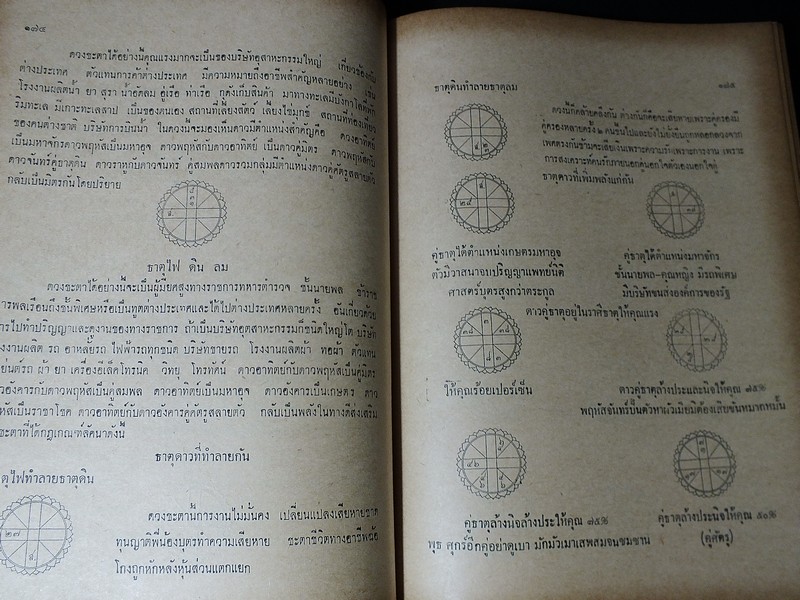 ๑๗๔
ดวงชะตาได้อย่างนี้คุณแรงมากจะเป็นของบริษัทอุตสาหะกรรมใหญ่ เกี่ยวข้องกับ
ต่างประเทศ ตัวแทนการค้าต่างประเทศ มีความหมายถึงอาชีพสำคัญหลายอย่าง เช่น
โรงงานผลิตน้ำ ยา สุรา น้ำอัดลม อู่เรือ ท่าเรือ กุดังเก็บสินค้า
ริมทะเล มีเกาะทะเลสาป เป็นของตนเอง สถานที่เลี้ยงสัตว์ เลี้ยงไข่มุกซ์ สถานที่ท่องเที่ยว
ของคนต่างชาติ บริษัทการบินน้ำ ในดวงนี้จะมองเห็นดาวมีตำแหน่งสำคัญคือ ดวงอาทิตย์
เป็นมหาจักรดาวพฤหัสเป็นมหาอุจ ดาวพฤหัสกับดาวอาทิตย์ เป็นดาวคู่มิตร ดาวพฤหัสกับ
ดาวจันทร์คู่ธาตุดิน ดาวราหูกับดาวจันทร์ คู่สมพลดาวรวมกลุ่มมีตำแหน่งดาวคู่ศัตรูสลายตัว
กลับเป็นมิตรกันโดยปริยาย
ธาตุไฟ ดิน ลม
ดวงชะตาได้อย่างนี้จะเป็นผู้มียศสูงทางราชการทหารตำรวจ ชั้นนายพล ข้าราช
การพลเรือนถึงชั้นพิเศษหรือเป็นทูตต่างประเทศและได้ไปต่างประเทศหลายครั้ง อันเกี่ยวด้วย
การไปทำปริญญาและดูงานของทางราชการ ถ้าเป็นบริษัทอุตสาหะกรรมก็ชนิดใหญ่โต บริษัท
งงานผลิต รถ อาหลั่ยรถ ไฟฟ้ารถทุกชนิด บริษัทขายรถ โรงงานผลิตผ้า ทอผ้า ตัวแทน
ยนต์รถ ผ้า ยา เครื่องอีเล็คโทรนิค วิทยุ โทรทัศน์ ดาวอาทิตย์กับดาวพฤหัสเป็นคู่มิตร
วอังคารกับดาวพฤหัสเป็นคู่สมพล ดาวอาทิตย์เป็นมหาอุจ ดาวอังคารเป็นเกษตร ดาว
หัสเป็นราชาโชค ดาวอาทิตย์กับดาวอังคารคู่ศัตรูสลายตัว กลับเป็นพลังในทางดีส่งเสริม
ชะตาที่ได้กฎเกณฑ์ลัคนาดังนี้
ธาตุดาวที่ทำลายกัน
ตุไฟทำลายธาตุดิน
๒๗
ดวงชะตานี้การงานไม่มั่นคง เปลี่ยนแปลงเสียหายขาด
ทุนญาติพี่น้องบุตรทำความเสียหาย ชะตาชีวิตทางอาชีพฉ้อ
โกงถูกหักหลังหุ้นส่วนแตกแยก
ธาตุดินทำลายธาตุลม
๑๗๕
ดวงนี้ก็คล้ายคลึงกัน ต่างกันก็คือจะเสียหายเพราะคู่ครองมี
คู่ครองหลายครั้ง ๒ คนขึ้นไปและยังไม่ยั่งยืนถูกทอดกลวงจาก
เพศตรงกันข้ามจะเสียเงินเพราะความรักเพราะการงาน เพราะ
การสงเคราะห์คนรักภายนอกคู่นอกใจตัวเองนอกใจคู่
ธาตุดาวที่เพิ่มพลังแก่กัน
๒๔
คู่ธาตุได้ตำแหน่งเกษตรมหาอุจ
ตัวมีวาสนาจบปริญญาแพทย์นิติ
ศาสตร์บุตรสูงกว่าตระกูล
คู่ธาตุได้ตำแหน่งมหาจักร
ชั้นนายพล-คุณหญิง มีรถพิเศษ
มีบริษัทขนส่งองค์การของรัฐ
ดาวคู่ธาตุอยู่ในราศีธาตุให้คุณแรง
ให้คุณร้อยเปอร์เซ็น
ดาวคู่ธาตุล้างประและนิจให้คุณ ๗๕%
พฤหัสจันทร์ปั้นตัวหาผัวเมียมีต้องเสียขันหมากหมั้น
คู่ธาตุล้างนิจล้างประให้คุณ ๗๕%
พุธ ศุกร์อีกคู่อย่าดูเบา มักมัวเมาเสพสมจนซมซาน
คู่ธาตุล้างประนิจให้คุณ ๕๐%
(คู่ศัตรู)